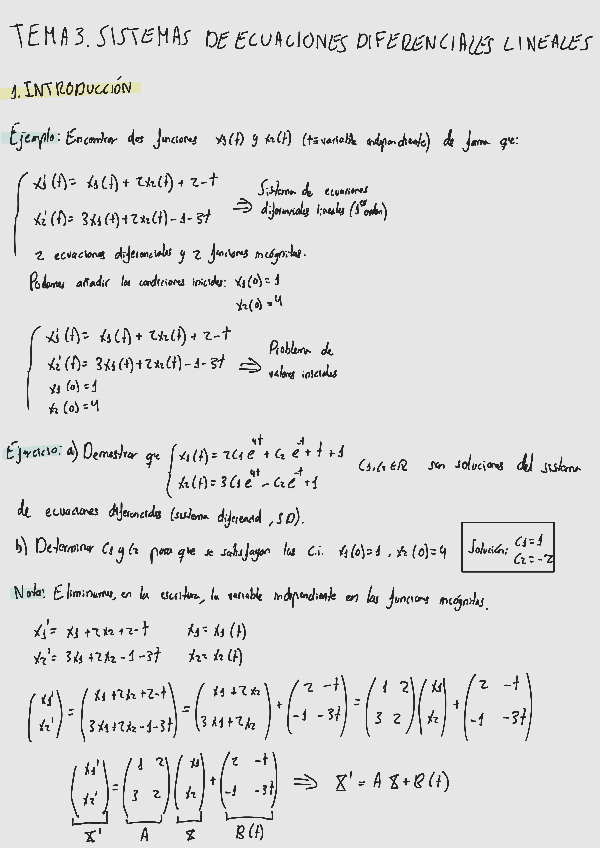 TEMA 3. SISTEMAS DE ECUACIONES DIFERENCIALES LINEALES
1. INTRODUCCIÓN
Ejemplo: Encontrar dos funciones x1(t) y x2(t) (t=variable independiente) de forma que:
x1'(t) = x1(t) + 2x2(t) + 2-t
x2'(t) = 3x1(t) + 2x2(t) - 1 - 3t
⇒ Sistema de ecuaciones
diferenciales lineales (1er orden)
2 ecuaciones diferenciales y 2 funciones incógnitas.
Podemos añadir las condiciones iniciales: x1(0) = 1
x2(0) = 4
x1'(t) = x1(t) + 2x2(t) + 2-t
x2'(t) = 3x1(t) + 2x2(t) - 1 - 3t
x1(0) = 1
x2(0) = 4
⇒ Problema de
valores iniciales
Ejercicio: a) Demostrar que { x1(t) = 2C1 e^4t + C2 e^-t + t + 1
x2(t) = 3C1 e^4t - C2 e^-t + 1
C1, C2 ∈ R son soluciones del sistema
de ecuaciones diferenciales (sistema diferencial, SD).
b) Determinar C1 y C2 para que se satisfagan las c.i. x1(0)=1, x2(0)=4
Solución: C1 = 1
C2 = -2
Nota: Eliminamos, en la escritura, la variable independiente en las funciones incógnitas.
x1' = x1 + 2x2 + 2-t x1 = x1(t)
x2' = 3x1 + 2x2 - 1 - 3t x2 = x2(t)
(x1' ; x2') = (x1 + 2x2 + 2-t ; 3x1 + 2x2 - 1 - 3t) = (x1 + 2x2 ; 3x1 + 2x2) + (2 -t ; -1 -3t) = (1 2 ; 3 2) (x1 ; x2) + (2 -t ; -1 -3t)
(x1' ; x2') = (1 2 ; 3 2) (x1 ; x2) + (2 -t ; -1 -3t) ⇒ X' = A X + B(t)
X' A X B(t)